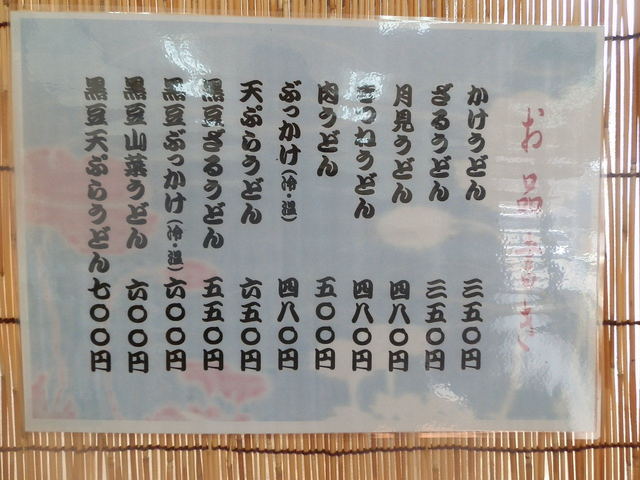 お品書き
かけうどん 三五〇円
ざるうどん 三五〇円
月見うどん 四八〇円
きつねうどん 四八〇円
肉うどん 五〇〇円
ぶっかけ(冷・温) 四八〇円
天ぷらうどん 六五〇円
黒豆ざるうどん 五五〇円
黒豆ぶっかけ(冷・温) 六〇〇円
黒豆山菜うどん 六〇〇円
黒豆天ぷらうどん 七〇〇円